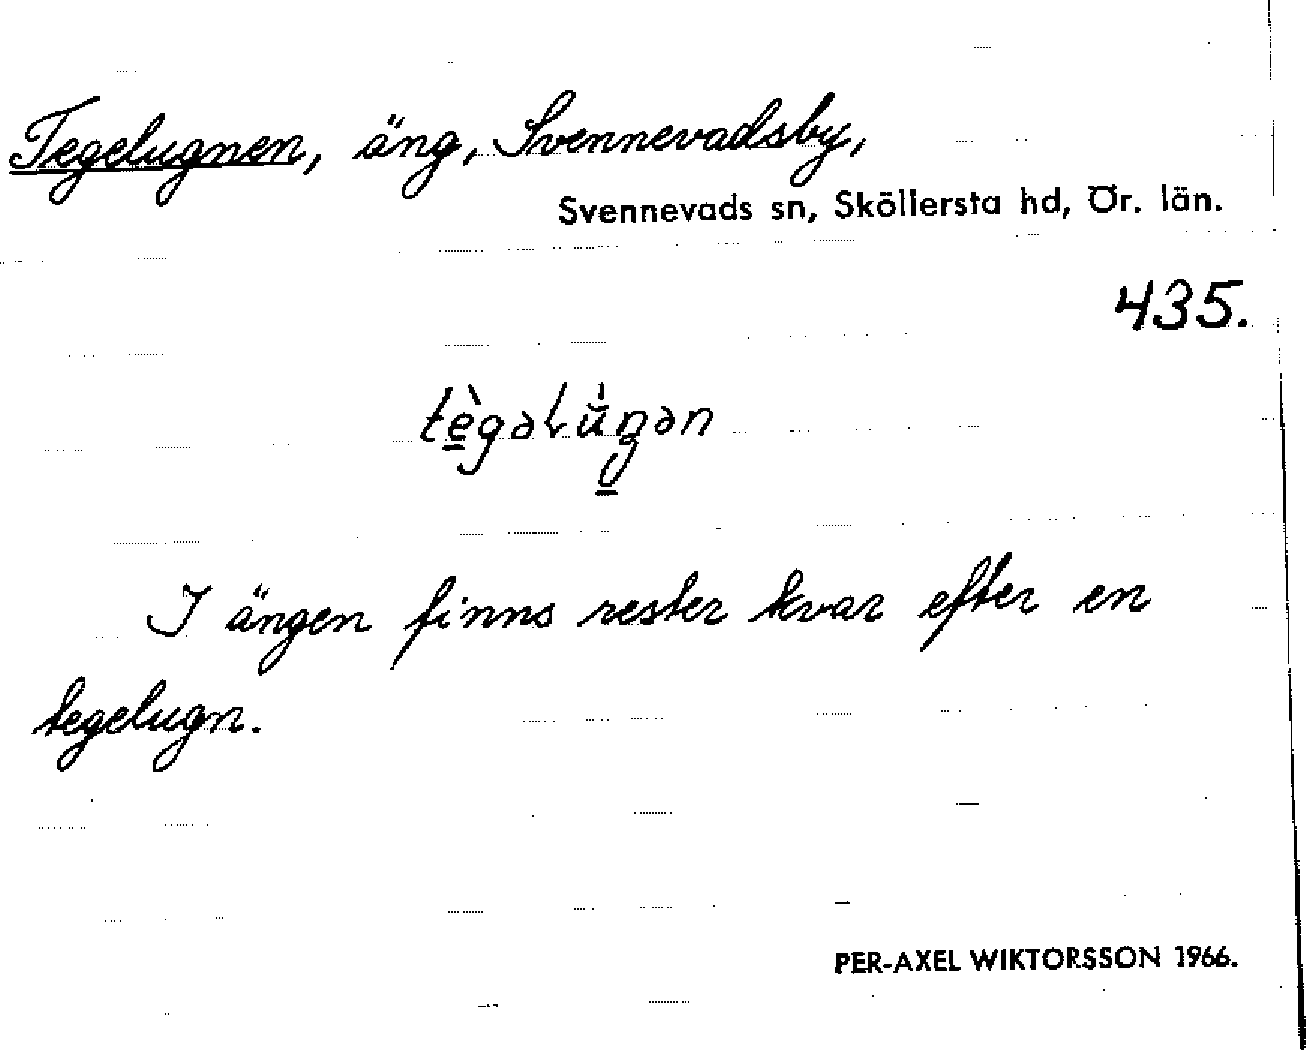 Tegelugnen, äng, Svennevadsby,
Svennevads sn, Sköllersta hd, Ör. län.
435.
I ängen finns rester kvar efter en
tegelugn.
PER-AXEL WIKTORSSON 1966.